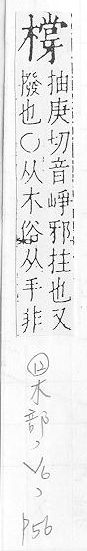 橕
抽庚切音崢邪拄也又
撥也○从木俗从手非
⑫木部，V6，P56